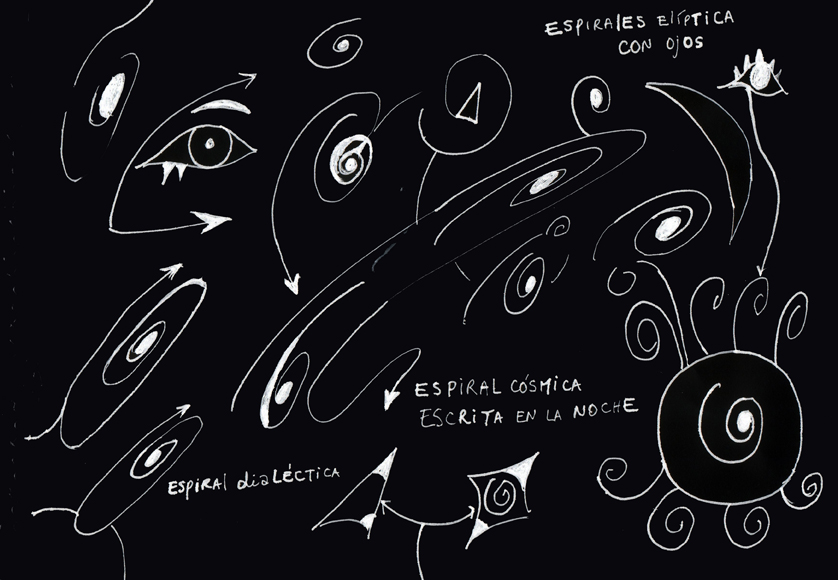 ESPIRALES ELÍPTICA
CON OJOS
ESPIRAL CÓSMICA
ESCRITA EN LA NOCHE
ESPIRAL diaLÉCTICA